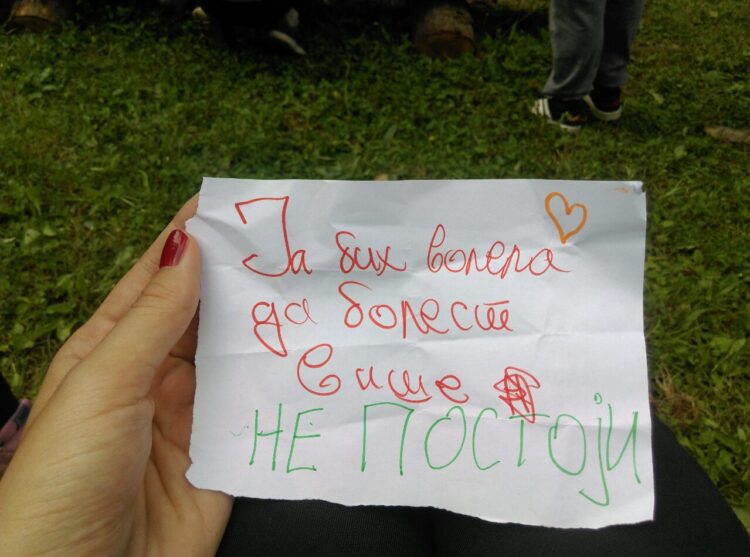 Ја бих волела
да болест
више
НЕ ПОСТОЈИ